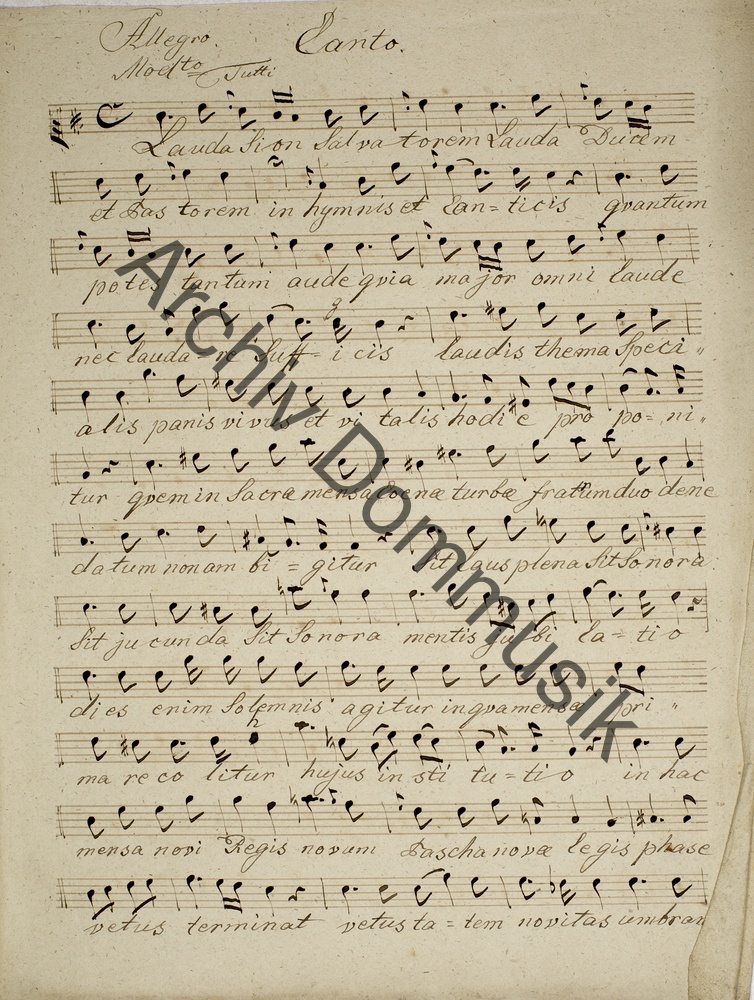 Allegro. Canto.
Modto Tutti
Lauda Sion Salva torem Lauda Ducem
et Pas torem in hymnis et Can= ticis qvantum
potes tantum aude qvia major omni laude
nec lauda re Suff= i cis laudis thema Speci„
alis panis vivus et vi talis hodie pro po=, ni„
tur qvem in Sacræ mensa Coenæ turbæ fratrum duo denæ
datum non am bi = gitur Sit Laus plena Sit Sonora
Sit ju cun da Sit Sonora mentis ju bi la= ti o
dies enim Solemnis agitur in qva mensæ pri „
ma re co litur hujus in sti tu= ti o in hac
mensa novi Regis novum Pascha novæ legis phase
vetus terminat vetus ta = tem novitas umbram
Archiv Dommusik